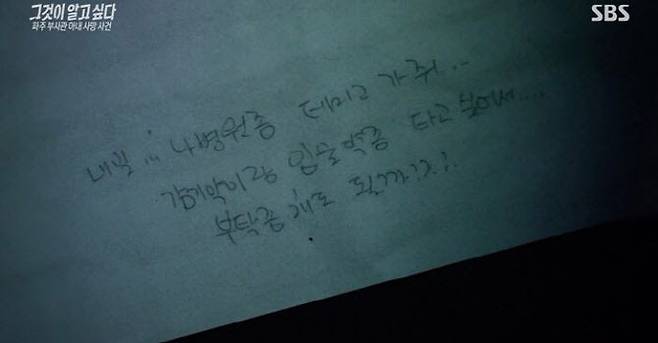 그것이 알고 싶다
파주 부사관 아내 사망 사건
SBS
내일 ... 나 병원좀 데리고 가줘...
감기약이랑 입술약좀 타고 싶어서....
부탁좀 해도 될까?.?.